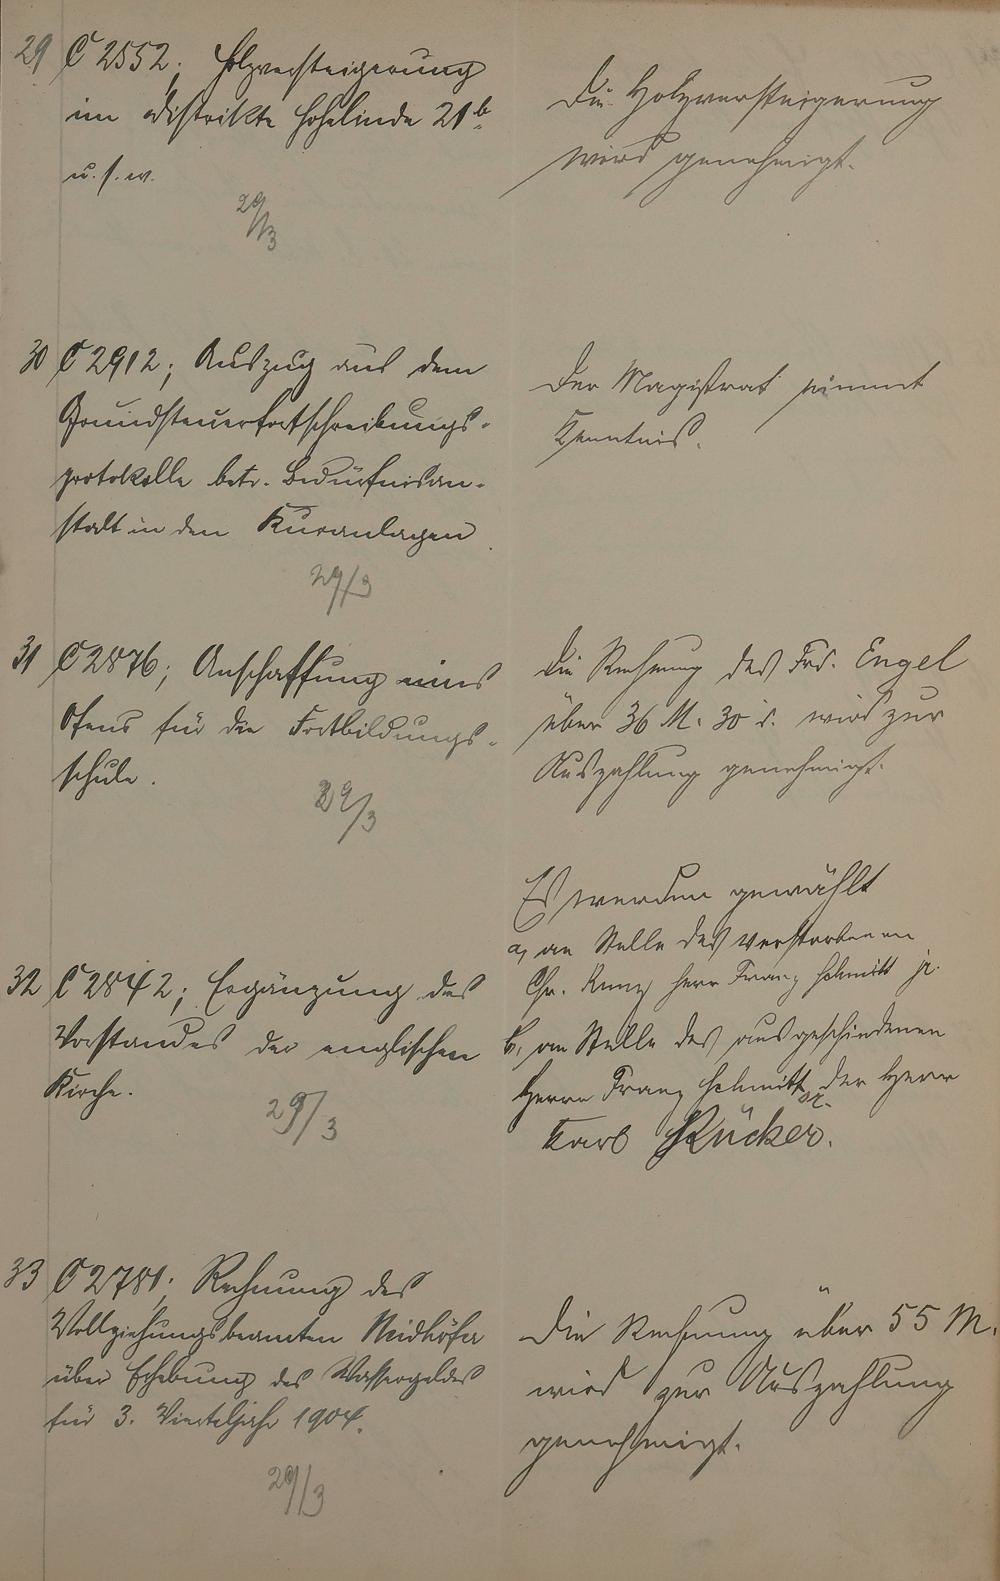 29 C 2552; Holzversteigerung
im Distrikte Hohelinde 21b
u. s. w.
29/3
Die Holzversteigerung
wird genehmigt.
30 C 2912; Auszug aus dem
Grundsteuerfortschreibungs-
protokolle betr. Bedürfnisan-
stalt in den Kuranlagen.
29/3
Der Magistrat nimmt
Kenntnis.
31 C 2876; Anschaffung eines
Ofens für die Fortbildungs-
schule.
29/3
Die Rechnung des Frd. Engel
über 36 M. 30 d. wird zur
Auszahlung genehmigt.
32 C 2842; Ergänzung des
Vorstandes der englischen
Kirche.
29/3
Es werden gewählt
a, an Stelle des verstorbenen
Chr. Kunz Herr Franz Schmitt jr.
b, an Stelle des ausgeschiedenen
Herrn Franz Schmitt sr. der Herr
Karl Rücker.
33 C 2781; Rechnung des
Vollziehungsbeamten Neidhöfer
über Erhebung des Wassergeldes
für 3. Vierteljahr 1904.
29/3
Die Rechnung über 55 M.
wird zur Auszahlung
genehmigt.